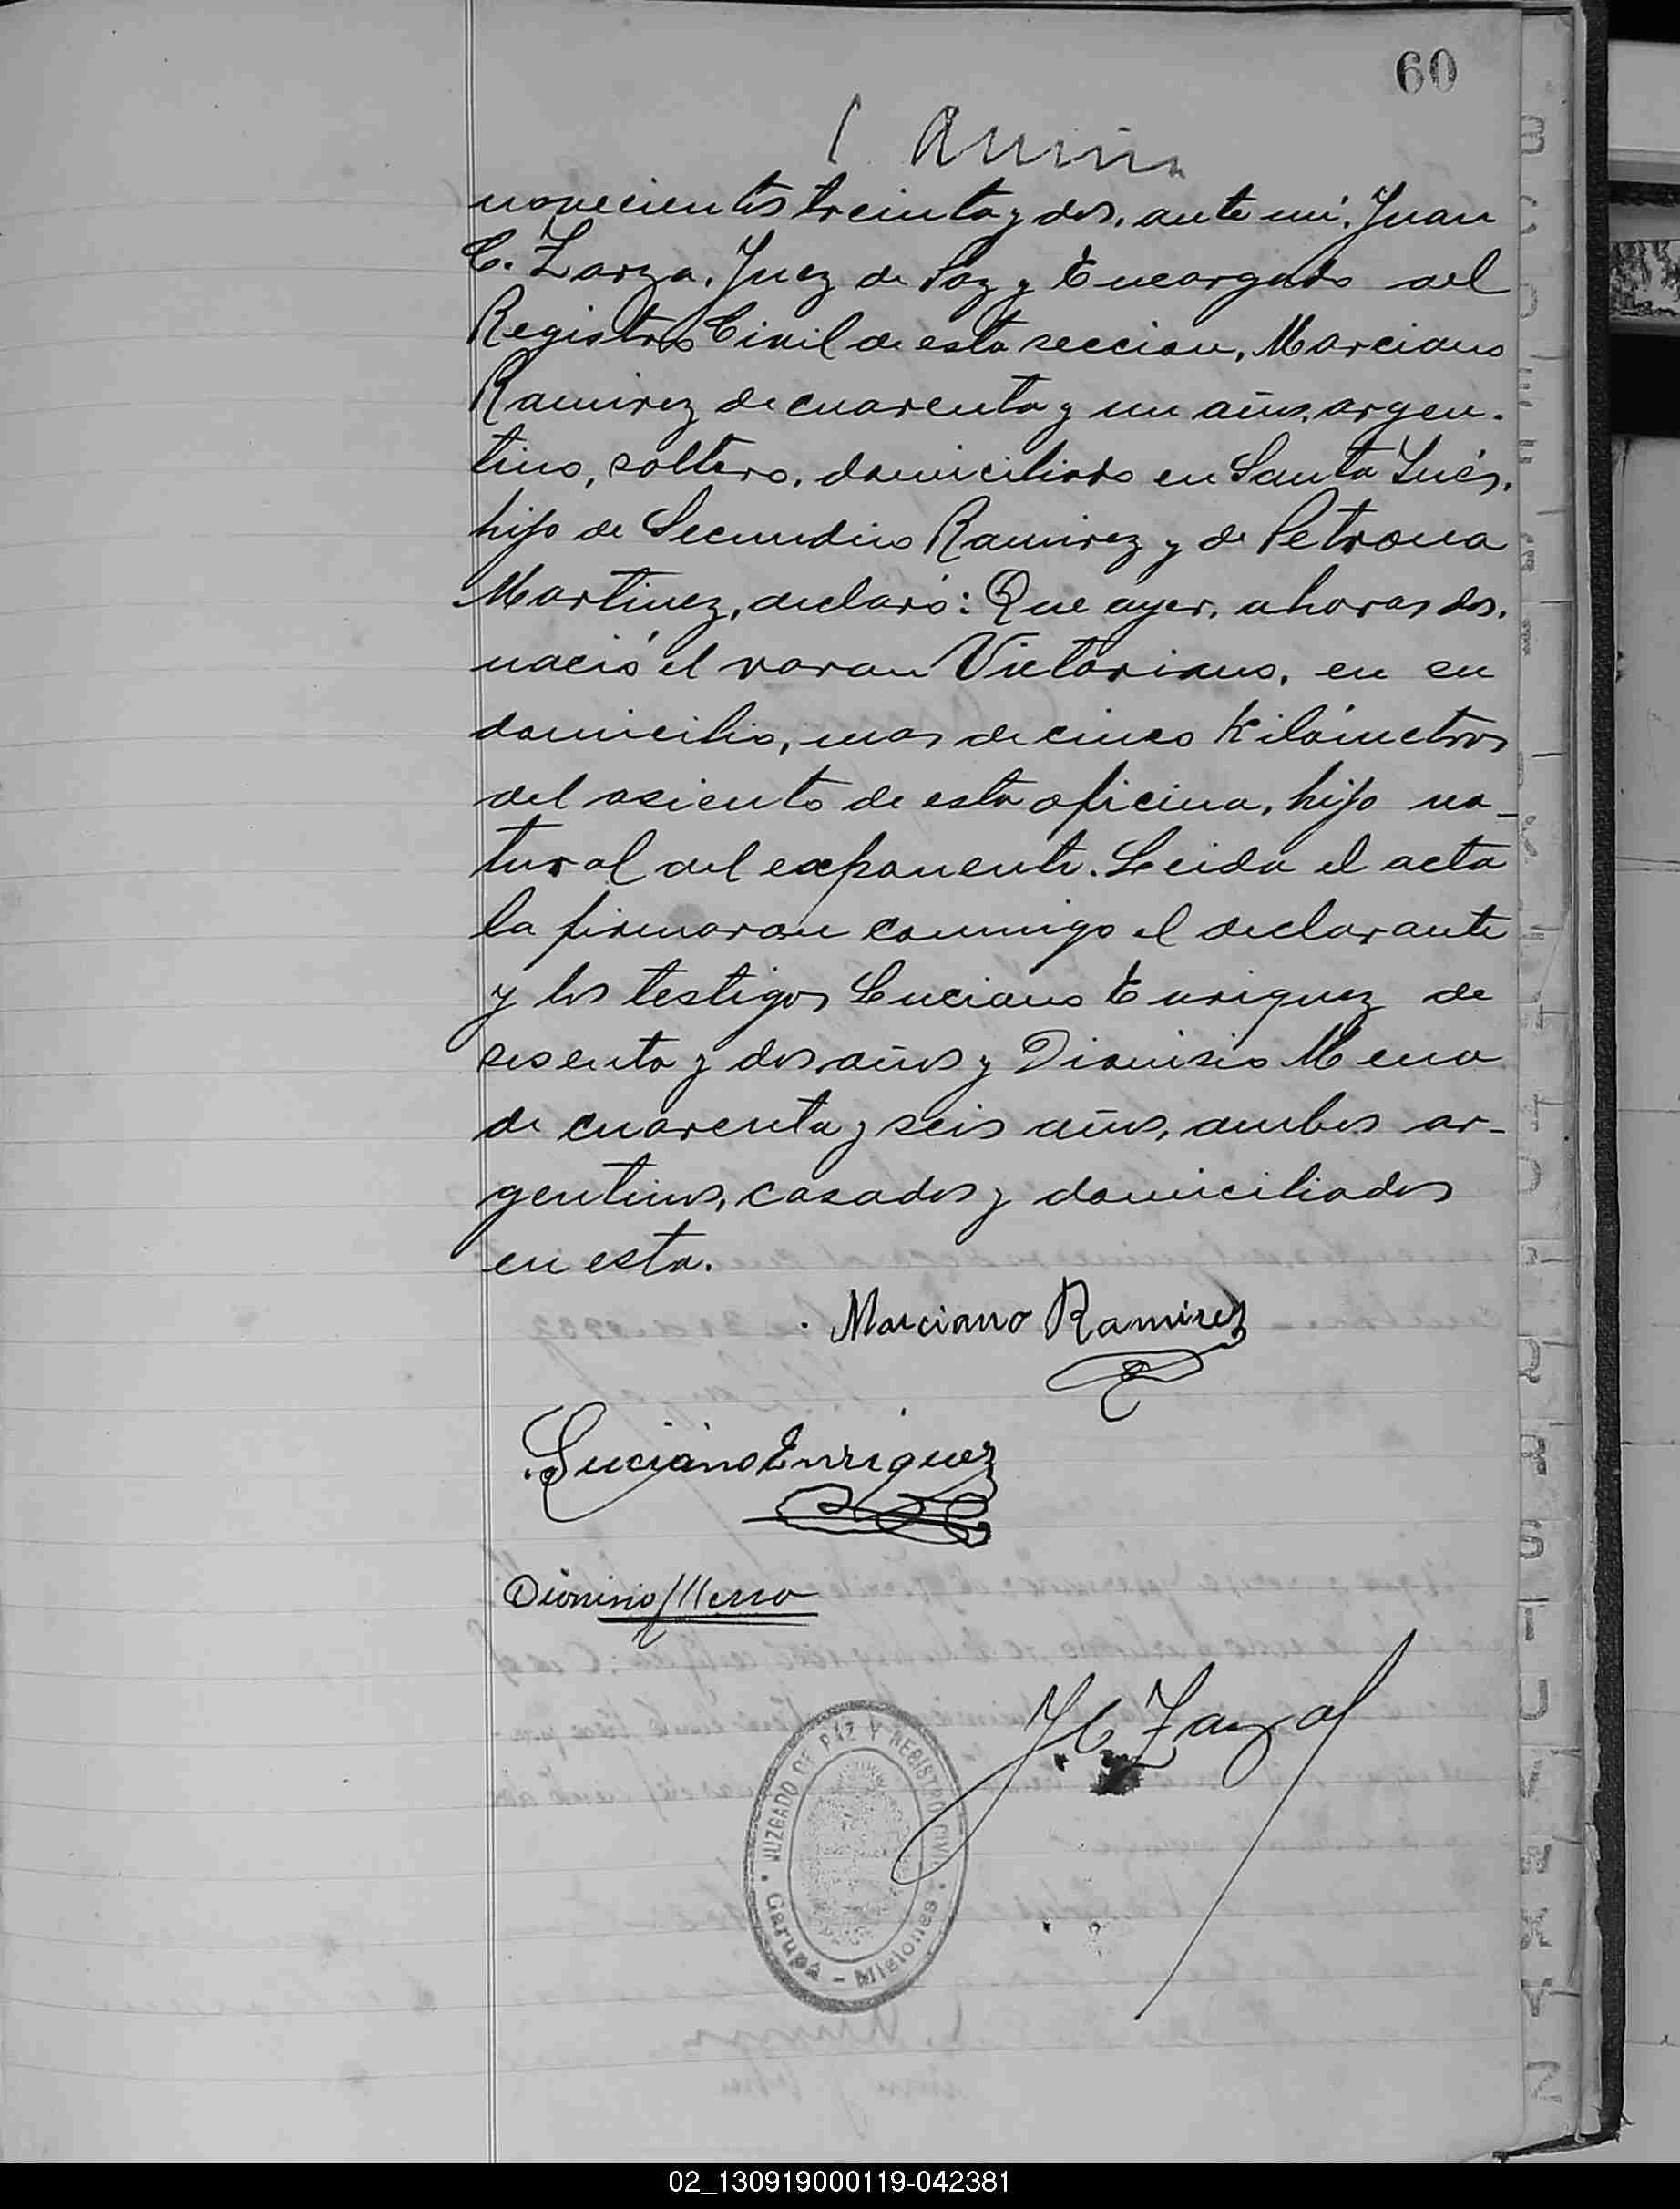 60
novecientos treinta y dos, ante mí, Juan
C. Zarza, Juez de Paz y Encargado del
Registro Civil de esta seccion, Marciano
Ramirez de cuarenta y un años, argen-
tino, soltero, domiciliado en Santa Inés,
hijo de Secundino Ramirez y de Petrona
Martinez, declaró: Que ayer, a horas dos,
nació el varon Victoriano, en su
domicilio, mas de cinco Kilómetros
del asiento de esta oficina, hijo na-
tural del exponente. Leida el acta
la firmaron conmigo el declarante
y los testigos Luciano Enriquez de
sesenta y dos años y Dionisio Mena
de cuarenta y seis años, ambos ar-
gentinos, casados y domiciliados
en esta.
Marciano Ramirez
Luciano Enriquez
Dionisio Mena
J C Zarza
JUZGADO DE PAZ Y REGISTRO CIVIL
Garupá - Misiones
02_130919000119-042381